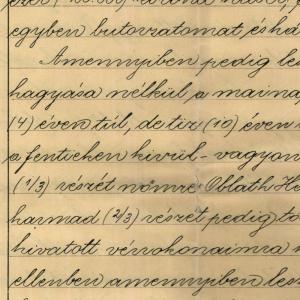 egyben butorzatomat, és há
Amennyiben pedig les
hagyása nélkül a maina
(4) éven túl, de tiz (10) éven
a fentieken kivül - vagyon
(1/3) részét nőmre Obláth He
harmad (2/3) részét pedig to
hivatott vérrokonaimra
ellenben amennyiben lesz